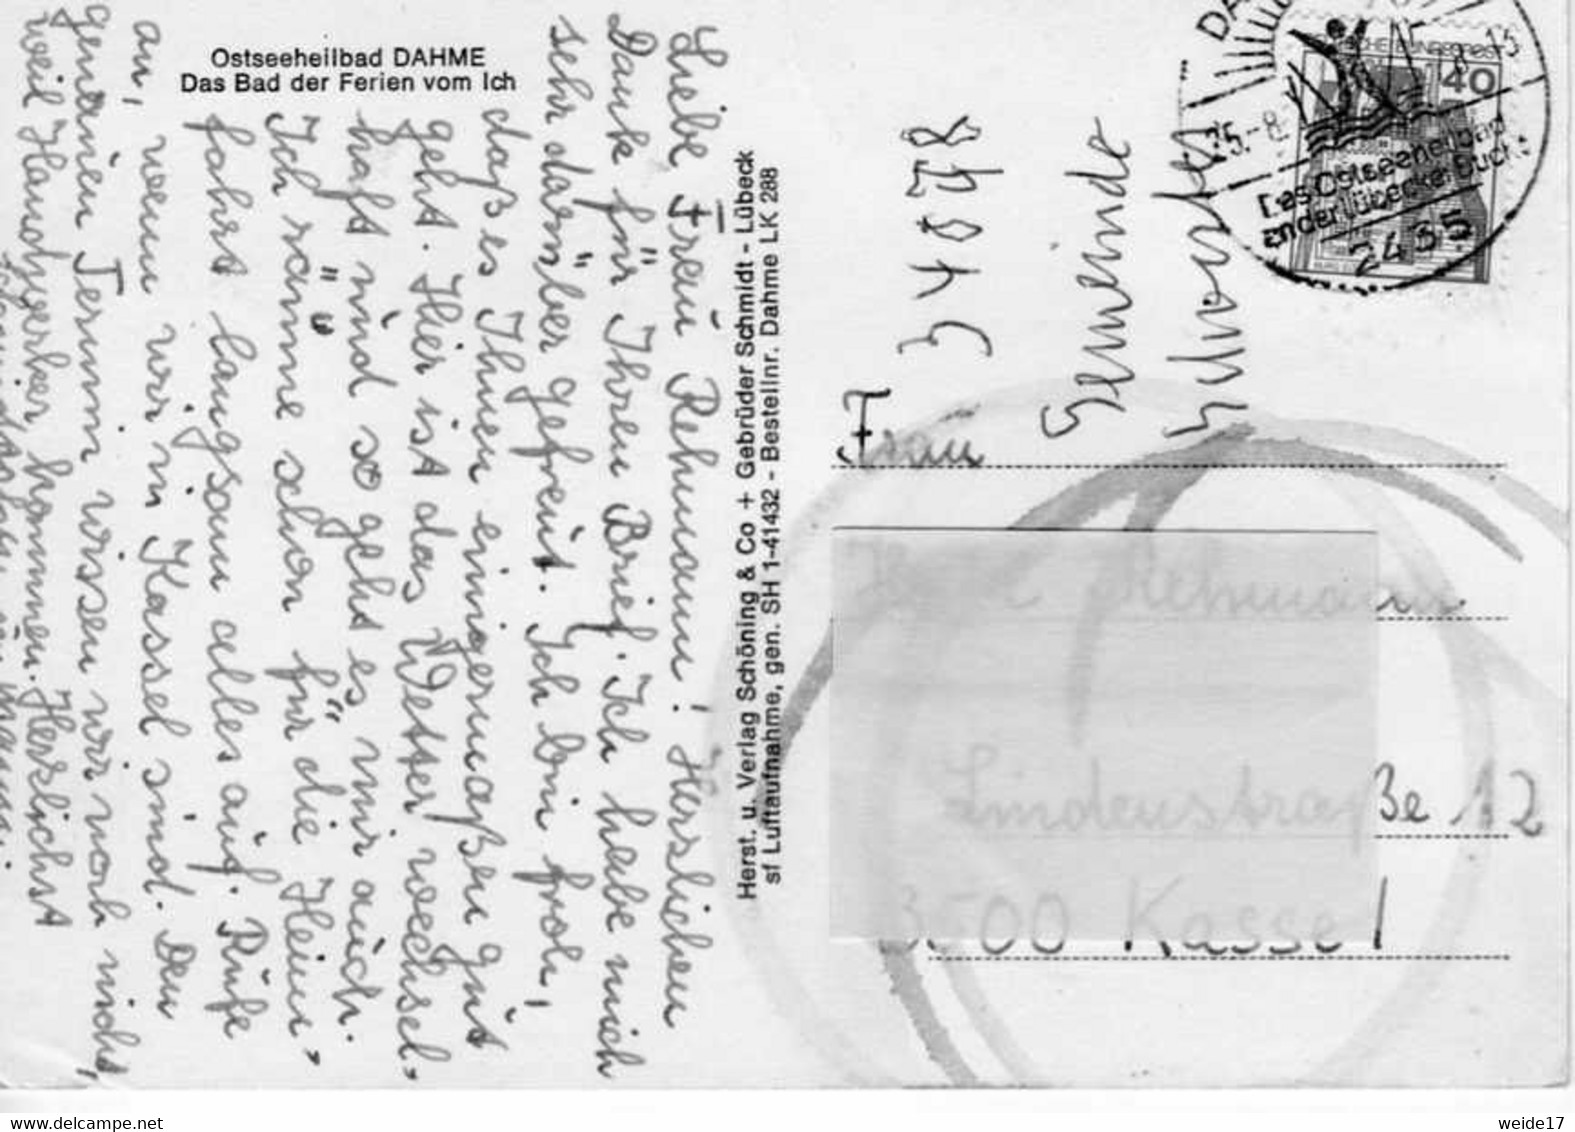 Ostseeheilbad DAHME
Das Bad der Ferien vom Ich
Liebe Frau Rehmann! Herzlichen
Dank für Ihren Brief. Ich habe mich
sehr darüber gefreut. Ich bin froh,
daß es Ihnen einigermaßen gut
geht. Hier ist das Wetter wechsel-
haft und so geht es mir auch.
Ich räume schon für die Heim-
fahrt langsam alles auf. Rufe
an, wenn wir in Kassel sind. Den
genauen Termin wissen wir noch nicht,
weil Handwerker kommen. Herzlichst
Herst. u. Verlag Schöning & Co + Gebrüder Schmidt - Lübeck
sf Luftaufnahme, gen. SH 1-41432 - Bestellnr. Dahme LK 288
Gemeinde
Frau
Rehmann
Lindenstraße 12
3500 Kassel
40
25.-8.
Das Ostseeheilbad
an der Lübecker Bucht
2435
www.delcampe.net
weide17